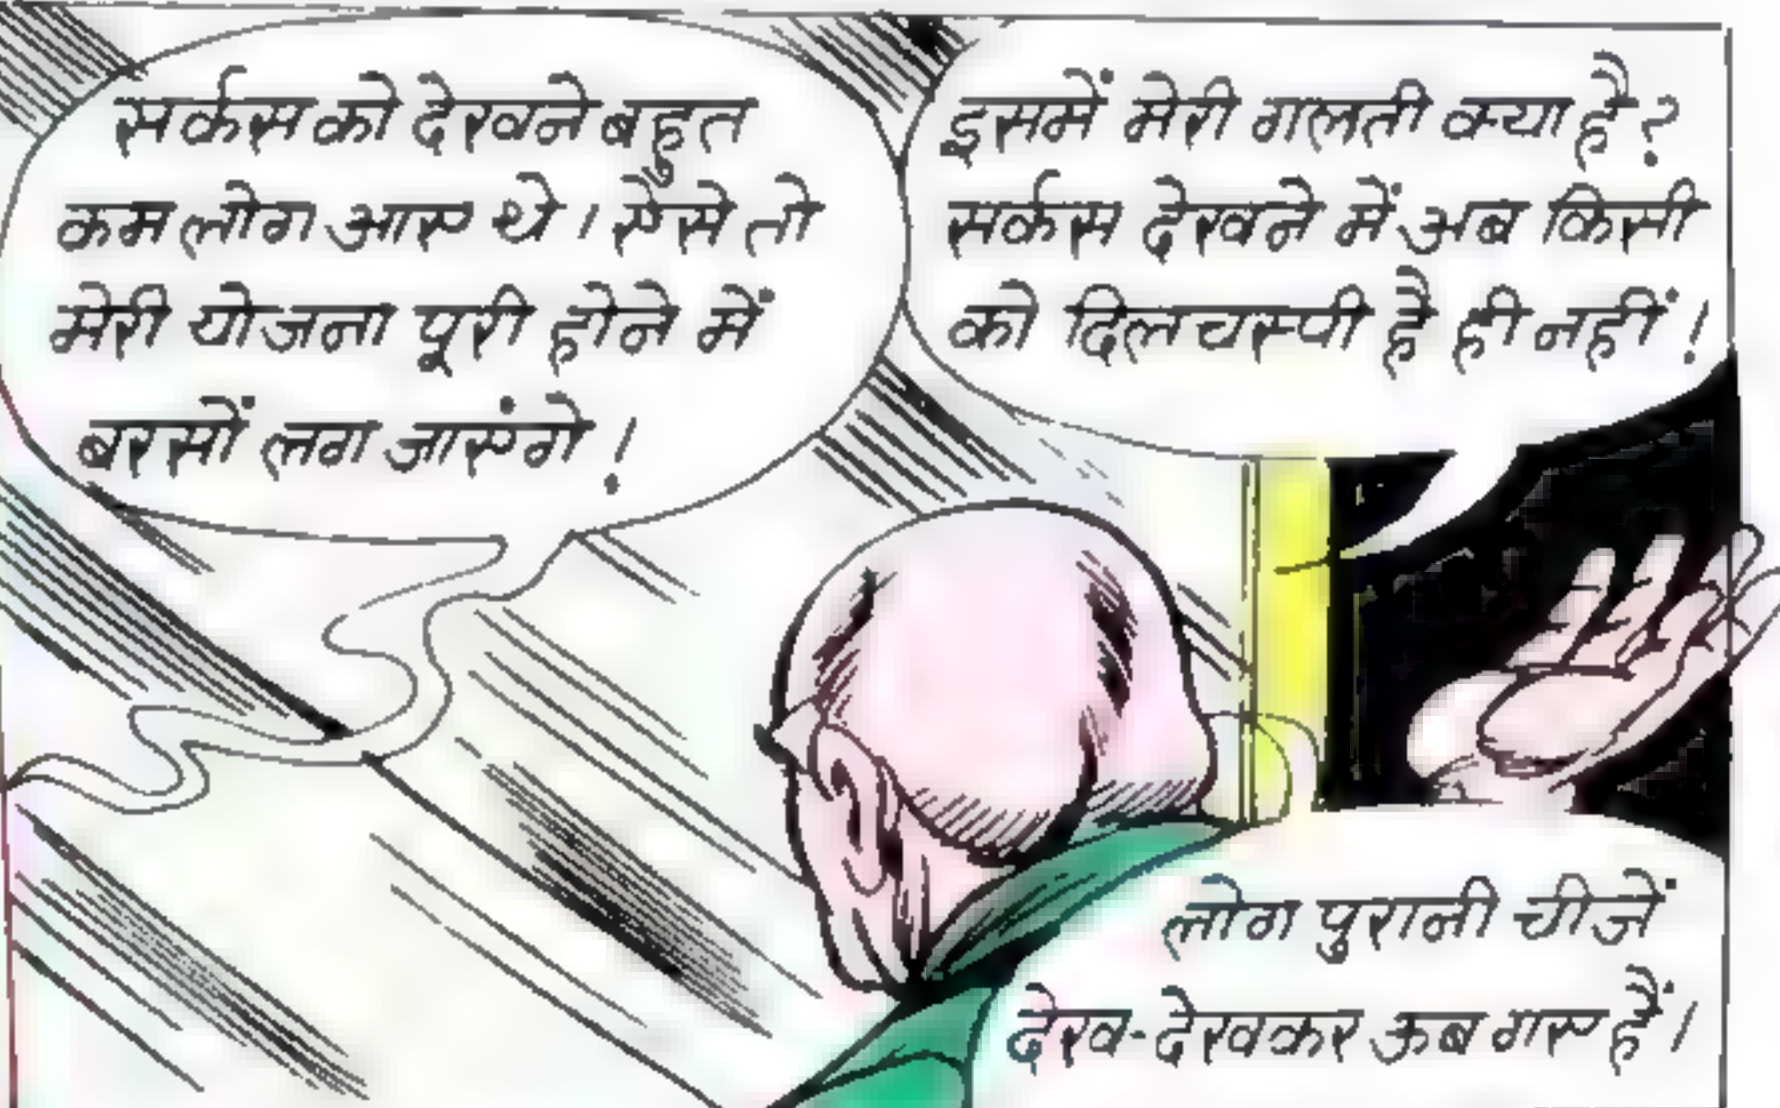 सर्कस को देखने बहुत
कम लोग आए थे। ऐसे तो
मेरी योजना पूरी होने में
बरसों लग जाएंगे!
इसमें मेरी गलती क्या है?
सर्कस देखने में अब किसी
को दिलचस्पी है ही नहीं!
लोग पुरानी चीजें
देख-देखकर ऊब गए हैं।